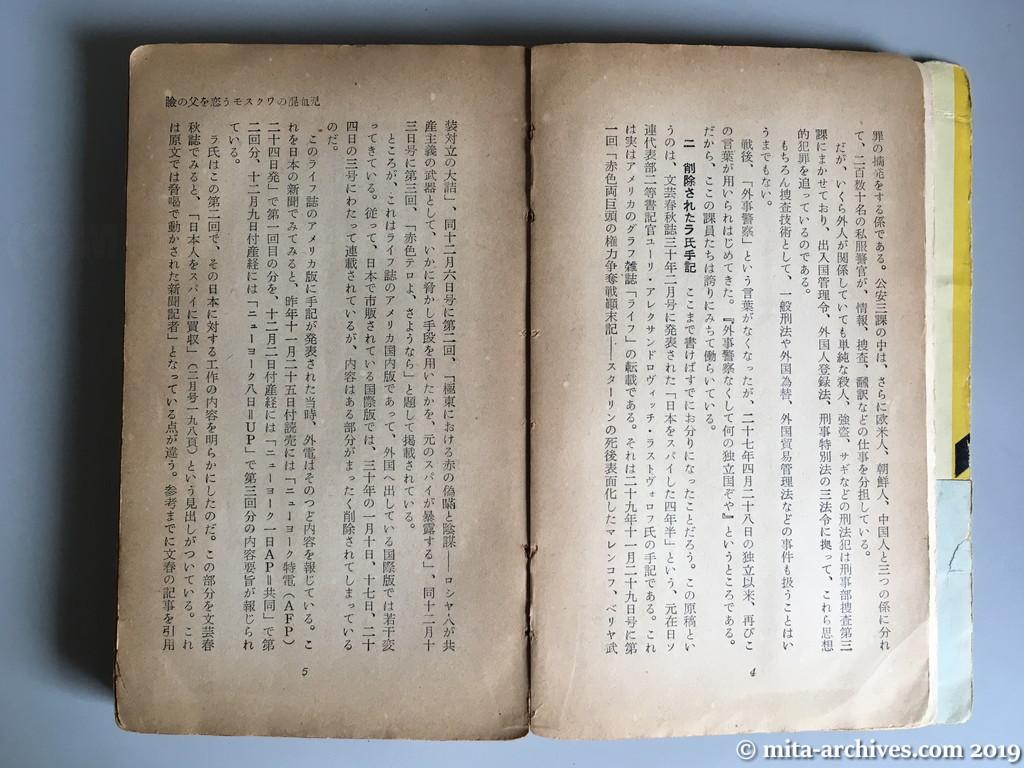 罪の摘発をする係である。公安三課の中は、さらに欧米人、朝鮮人、中国人と三つの係に分れ
て、二百数十名の私服警官が、情報、捜査、飜訳などの仕事を分担している。
だが、いくら外人が関係していても単純な殺人、強盗、サギなどの刑法犯は刑事部捜査第三
課にまかせており、出入国管理令、外国人登録法、刑事特別法の三法令に拠って、これら思想
的犯罪を追っているのである。
もちろん捜査技術として、一般刑法や外国為替、外国貿易管理法などの事件も扱うことはい
うまでもない。
戦後、「外事警察」という言葉がなくなったが、二十七年四月二十八日の独立以来、再びこ
の言葉が用いられはじめてきた。『外事警察なくして何の独立国ぞや』というところである。
だから、ここの課員たちは誇りにみちて働らいている。
二 削除されたラ氏手記 ここまで書けばすでにお分りになったことだろう。この原稿とい
うのは、文芸春秋誌三十年二月号に発表された「日本をスパイした四年半」という、元在日ソ
連代表部二等書記官ユーリ・アレクサンドロヴィッチ・ラストヴォロフ氏の手記である。これ
は実はアメリカのグラフ雑誌「ライフ」の転載である。それは二十九年十一月二十九日号に第
一回「赤色両巨頭の権力争奪戦顚末記――スターリンの死後表面化したマレンコフ、ベリヤ武
4
瞼の父を恋うモスクワの混血児
装対立の大詰」、同十二月六日号に第二回、「極東における赤の偽瞞と陰謀――ロシヤ人が共
産主義の武器として、いかに脅かし手段を用いたかを、元のスパイが暴露する」、同十二月十
三日号に第三回、「赤色テロよ、さようなら」と題して掲載されている。
ところが、これはライフ誌のアメリカ国内版であって、外国へ出している国際版では若干変
ってきている。従って、日本で市販されている国際版では、三十年の一月十日、十七日、二十
四日の三号にわたって連載されているが、内容はある部分がまったく削除されてしまっている
のだ。
このライフ誌のアメリカ版に手記が発表された当時、外電はそのつど内容を報じている。こ
れを日本の新聞でみてみると、昨年十一月二十五日付読売には「ニューヨーク特電（AFP）
二十四日発」で第一回目の分を、十二月二日付産経には「ニューヨーク一日AP＝共同」で第
二回分、十二月九日付産経には「ニューヨーク八日＝UP」で第三回分の内容要旨が報じられ
ている。
ラ氏はこの第二回で、その日本に対する工作の内容を明らかにしたのだ。この部分を文芸春
秋誌でみると、「日本人をスパイに買収」（二月号一九八頁）という見出しがついている。これ
は原文では脅喝で動かされた新聞記者」となっている点が違う。参考までに文春の記事を引用
5
© mita-archives.com 2019